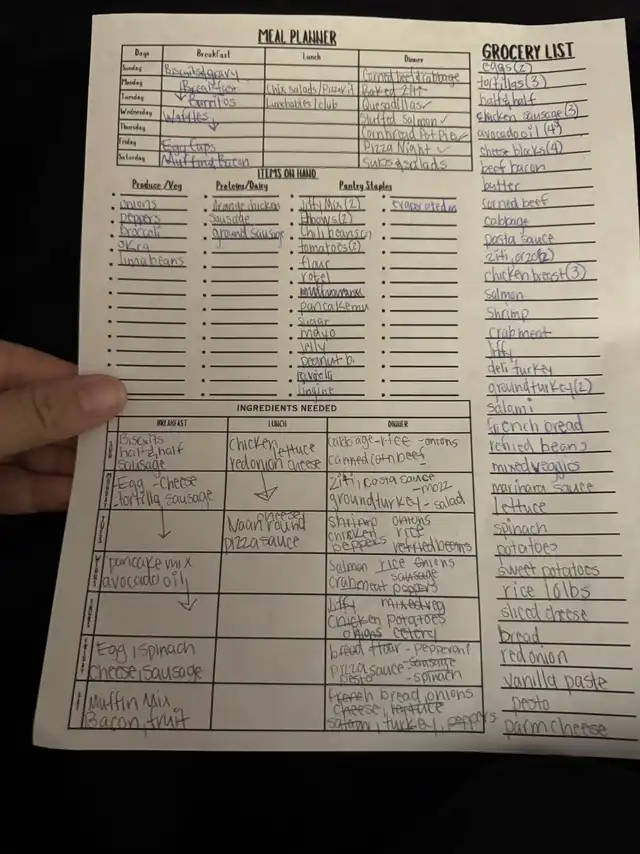 MEAL PLANNER
Days Breakfast Lunch Dinner
Sunday Biscuits&gravy Corned beef&cabbage
Monday Breakfast Chix salads/Pizza Baked Ziti
Tuesday Burritos Lunchables/club Quesadillas
Wednesday Waffles Stuffed Salmon
Thursday Cornbread Pot Pie
Friday Egg Cups Pizza Night
Saturday Muffin&Bacon Subs&salads
ITEMS ON HAND
Produce/Veg Proteins/Dairy Pantry Staples
onions orange chicken Jiffy Mix(2) evaporated
peppers sausage elbows(2)
broccoli ground sausage chili beans
okra tomatoes(2)
lima beans flour
rotel
pancake mu
sugar
mayo
jelly
peanut b.
GROCERY LIST
eggs(2)
tortillas(3)
half&half
chicken sausage(3)
avocado oil(4)
cheese blocks(4)
beef bacon
butter
corned beef
cabbage
pasta sauce
ziti, orzo(2)
chicken breast(3)
salmon
shrimp
crabmeat
Jiffy
deli turkey
ground turkey(2)
salami
french bread
refried beans
mixed veggies
marinara sauce
lettuce
spinach
potatoes
sweet potatoes
rice 10lbs
sliced cheese
bread
red onion
vanilla paste
pesto
parm cheese
INGREDIENTS NEEDED
BREAKFAST LUNCH DINNER
Biscuits Chicken lettuce cabbage-rice-onions
half&half red onion cheese canned corn beef
sausage
Egg-cheese ziti, pasta sauce
tortilla sausage -mozz
ground turkey-salad
cheese shrimp onions
Naan round chicken rice
pizza sauce peppers refried beans
pancake mix salmon rice onions
avocado oil sausage
crabmeat peppers
Jiffy mixed veg
chicken potatoes
onions celery
Egg, spinach bread flour-pepperoni
cheese, sausage pizza sauce-sausage
pesto -spinach
Muffin Mix french bread, onions
Bacon, fruit cheese, lettuce
salami, turkey, peppers